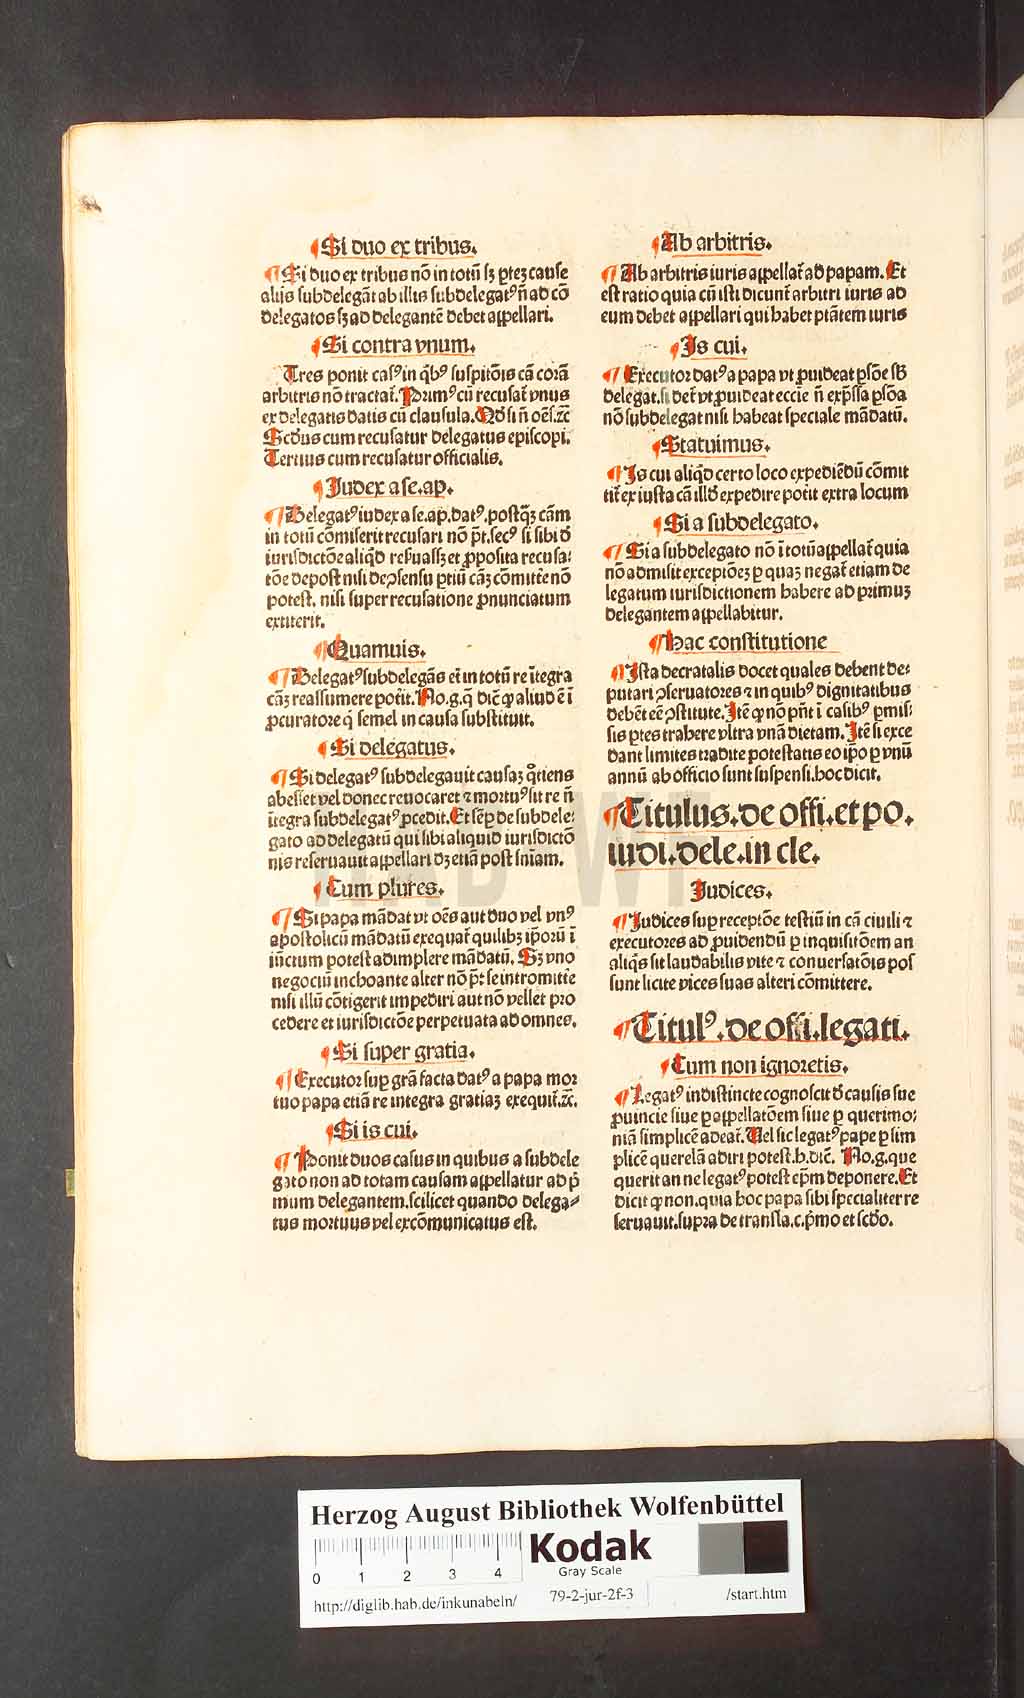 ¶Si duo ex tribus.
¶Si duo ex tribus nō in totū sꝫ ꝑteꝫ cause
alijs subdelegāt ab illis subdelegatꝰ n̄ ad cō
delegatos sꝫ ad delegantē debet appellari.
¶Si contra vnum.
Tres ponit casꝰ in q̄bꝰ suspitōis cā corā
arbitris nō tractat̄. Primꝰ cū recusat̄ vnus
ex delegatis datis cū clausula. Qd̓ si n̄ oēs.ꝛc̄
Scd̓us cum recusatur delegatus episcopi.
Tertius cum recusatur officialis.
¶Iudex a se.ap.
¶Delegatꝰ iudex a se.ap.datꝰ.postq̄ꝫ cām
in totū cōmiserit recusari nō p̄t.secꝰ si sibi d̓
iurisdictōe aliqd̓ reẜuassꝫ et ꝓposita recusa:
tōe de post nisi de ꝯsensu ꝑtiū cāꝫ cōmittē nō
potest. nisi super recusatione ꝓnunciatum
extiterit.
¶Quamuis.
¶Delegatꝰ subdelegās etī in totū re ītegra
cāꝫ reassumere potit̄. No.g.q̄ dic̄ ꝙ aliud ē ī
ꝓcuratore q̄ semel in causa substituit.
¶Si delegatus.
¶Si delegatꝰ subdelegauit causaꝫ q̊tiens
abesset vel donec reuocaret ⁊ mortuꝰ sit re n̄
ītegra subdelegatꝰ ꝓcedit. Et sēꝑ de subdele:
gato ad delegatū qui sibi aliquid iurisdictō
nis reseruauit appellari dꝫ etiā post sn̄iam.
¶Cum plures.
¶Si papa mādat vt oēs aut duo vel vnꝰ
apostolicū mādatū exequat̄ quilibꝫ ip̄orū ī
iūctum potest adimplere mādatū. Sꝫ vno
negociū inchoante alter nō p̄t se intromitte
nisi illū cōtigerit impediri aut nō vellet pro
cedere et iurisdictōe perpetuata ad omnes.
¶Si super gratia.
¶Executor sup̱ grā facta datꝰ a papa mor
tuo papa etiā re integra gratiaꝫ exequit̄.ꝛc̄.
¶Si is cui.
¶Ponit duos casus in quibus a subdele
gato non ad totam causam appellatur ad p̄
mum delegantem.scilicet quando delega⸗
tus mortuus vel excōmunicatus est.
¶Ab arbitris.
¶Ab arbitris iuris appellat̄ ad papam. Et
est ratio quia cū isti dicunt̄ arbitri iuris ad
eum debet appellari qui habet ptātem iuris
¶Is cui.
¶Executor datꝰ a papa vt ꝓuideat ꝑsōe sb̄
delegat.si det̄ vt ꝓuideat eccīe n̄ exp̄ssa ꝑsōa
nō subdelegat nisi habeat speciale mādatū.
¶Statuimus.
¶Is cui aliqd̓ certo loco expediēdū cōmit
tit̄ ex iusta cā illd̓ expedire potit extra locum
¶Si a subdelegato.
¶Si a subdelegato nō ī totū appellat̄ quia
nō admisit exceptōeꝫ ꝑ quaꝫ negat̄ etiam de
legatum iurisdictionem habere ad primuꝫ
delegantem appellabitur.
¶Hac constitutione
¶Ista decratalis docet quales debent de:
putari ꝯseruatores ⁊ in quibꝰ dignitatibus
debēt eē ꝯstitute. Itē ꝙ nō pn̄t ī casibꝰ ꝑmis:
sis ꝑtes trahere vltra vnā dietam. Itē si exce
dant limites tradite potestatis eo ip̄o ꝑ vnū
annū ab officio sunt suspensi.hoc dicit.
¶Titulus.de offi.et po.
iudi.dele.in cle.
Iudices.
¶Iudices suꝑ receptōe testiū in cā ciuili ⁊
executores ad ꝓuidendū ꝑ inquisitōem an
aliq̄s sit laudabilis vite ⁊ conuersatōis pos
sunt licite vices suas alteri cōmittere.
¶Titulꝰ.de offi.legati.
¶Cum non ignoretis.
¶Legatꝰ indistincte cognoscit d̓ causis sue
ꝓuincie siue ꝑ appellatōem siue ꝑ querimo:
niā simplicē adeat̄. Uel sic legatꝰ pape ꝑ sim
plicē querelā adiri potest.h.dic̄. No.g.que
querit an ne legatꝰ potest ep̄m deponere. Et
dicit ꝙ non.quia hoc papa sibi specialiter re
seruauit.supra de transla.c.p̄mo et scd̓o.
Herzog August Bibliothek Wolfenbüttel
0 1 2 3 4
Kodak
Gray Scale
http://diglib.hab.de/inkunabeln/ 79-2-jur-2f-3 /start.htm
HAB WF